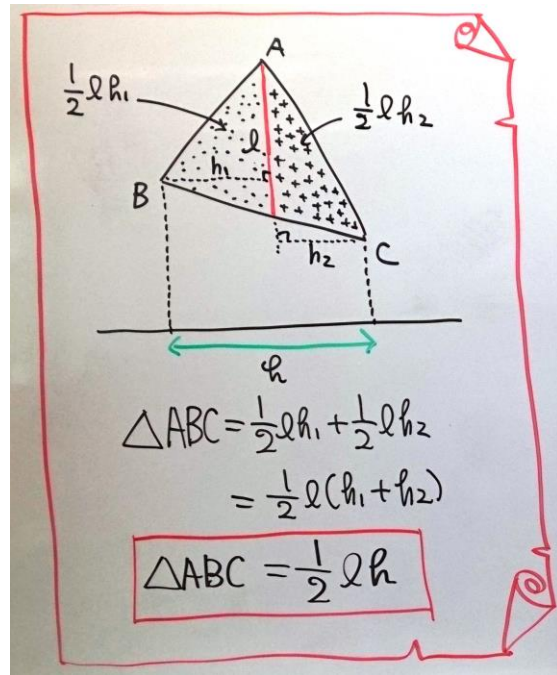 A
½ℓh₁
½ℓh₂
ℓ
h₁
B
h₂
C
h
△ABC=½ℓh₁+½ℓh₂
=½ℓ(h₁+h₂)
△ABC=½ℓh